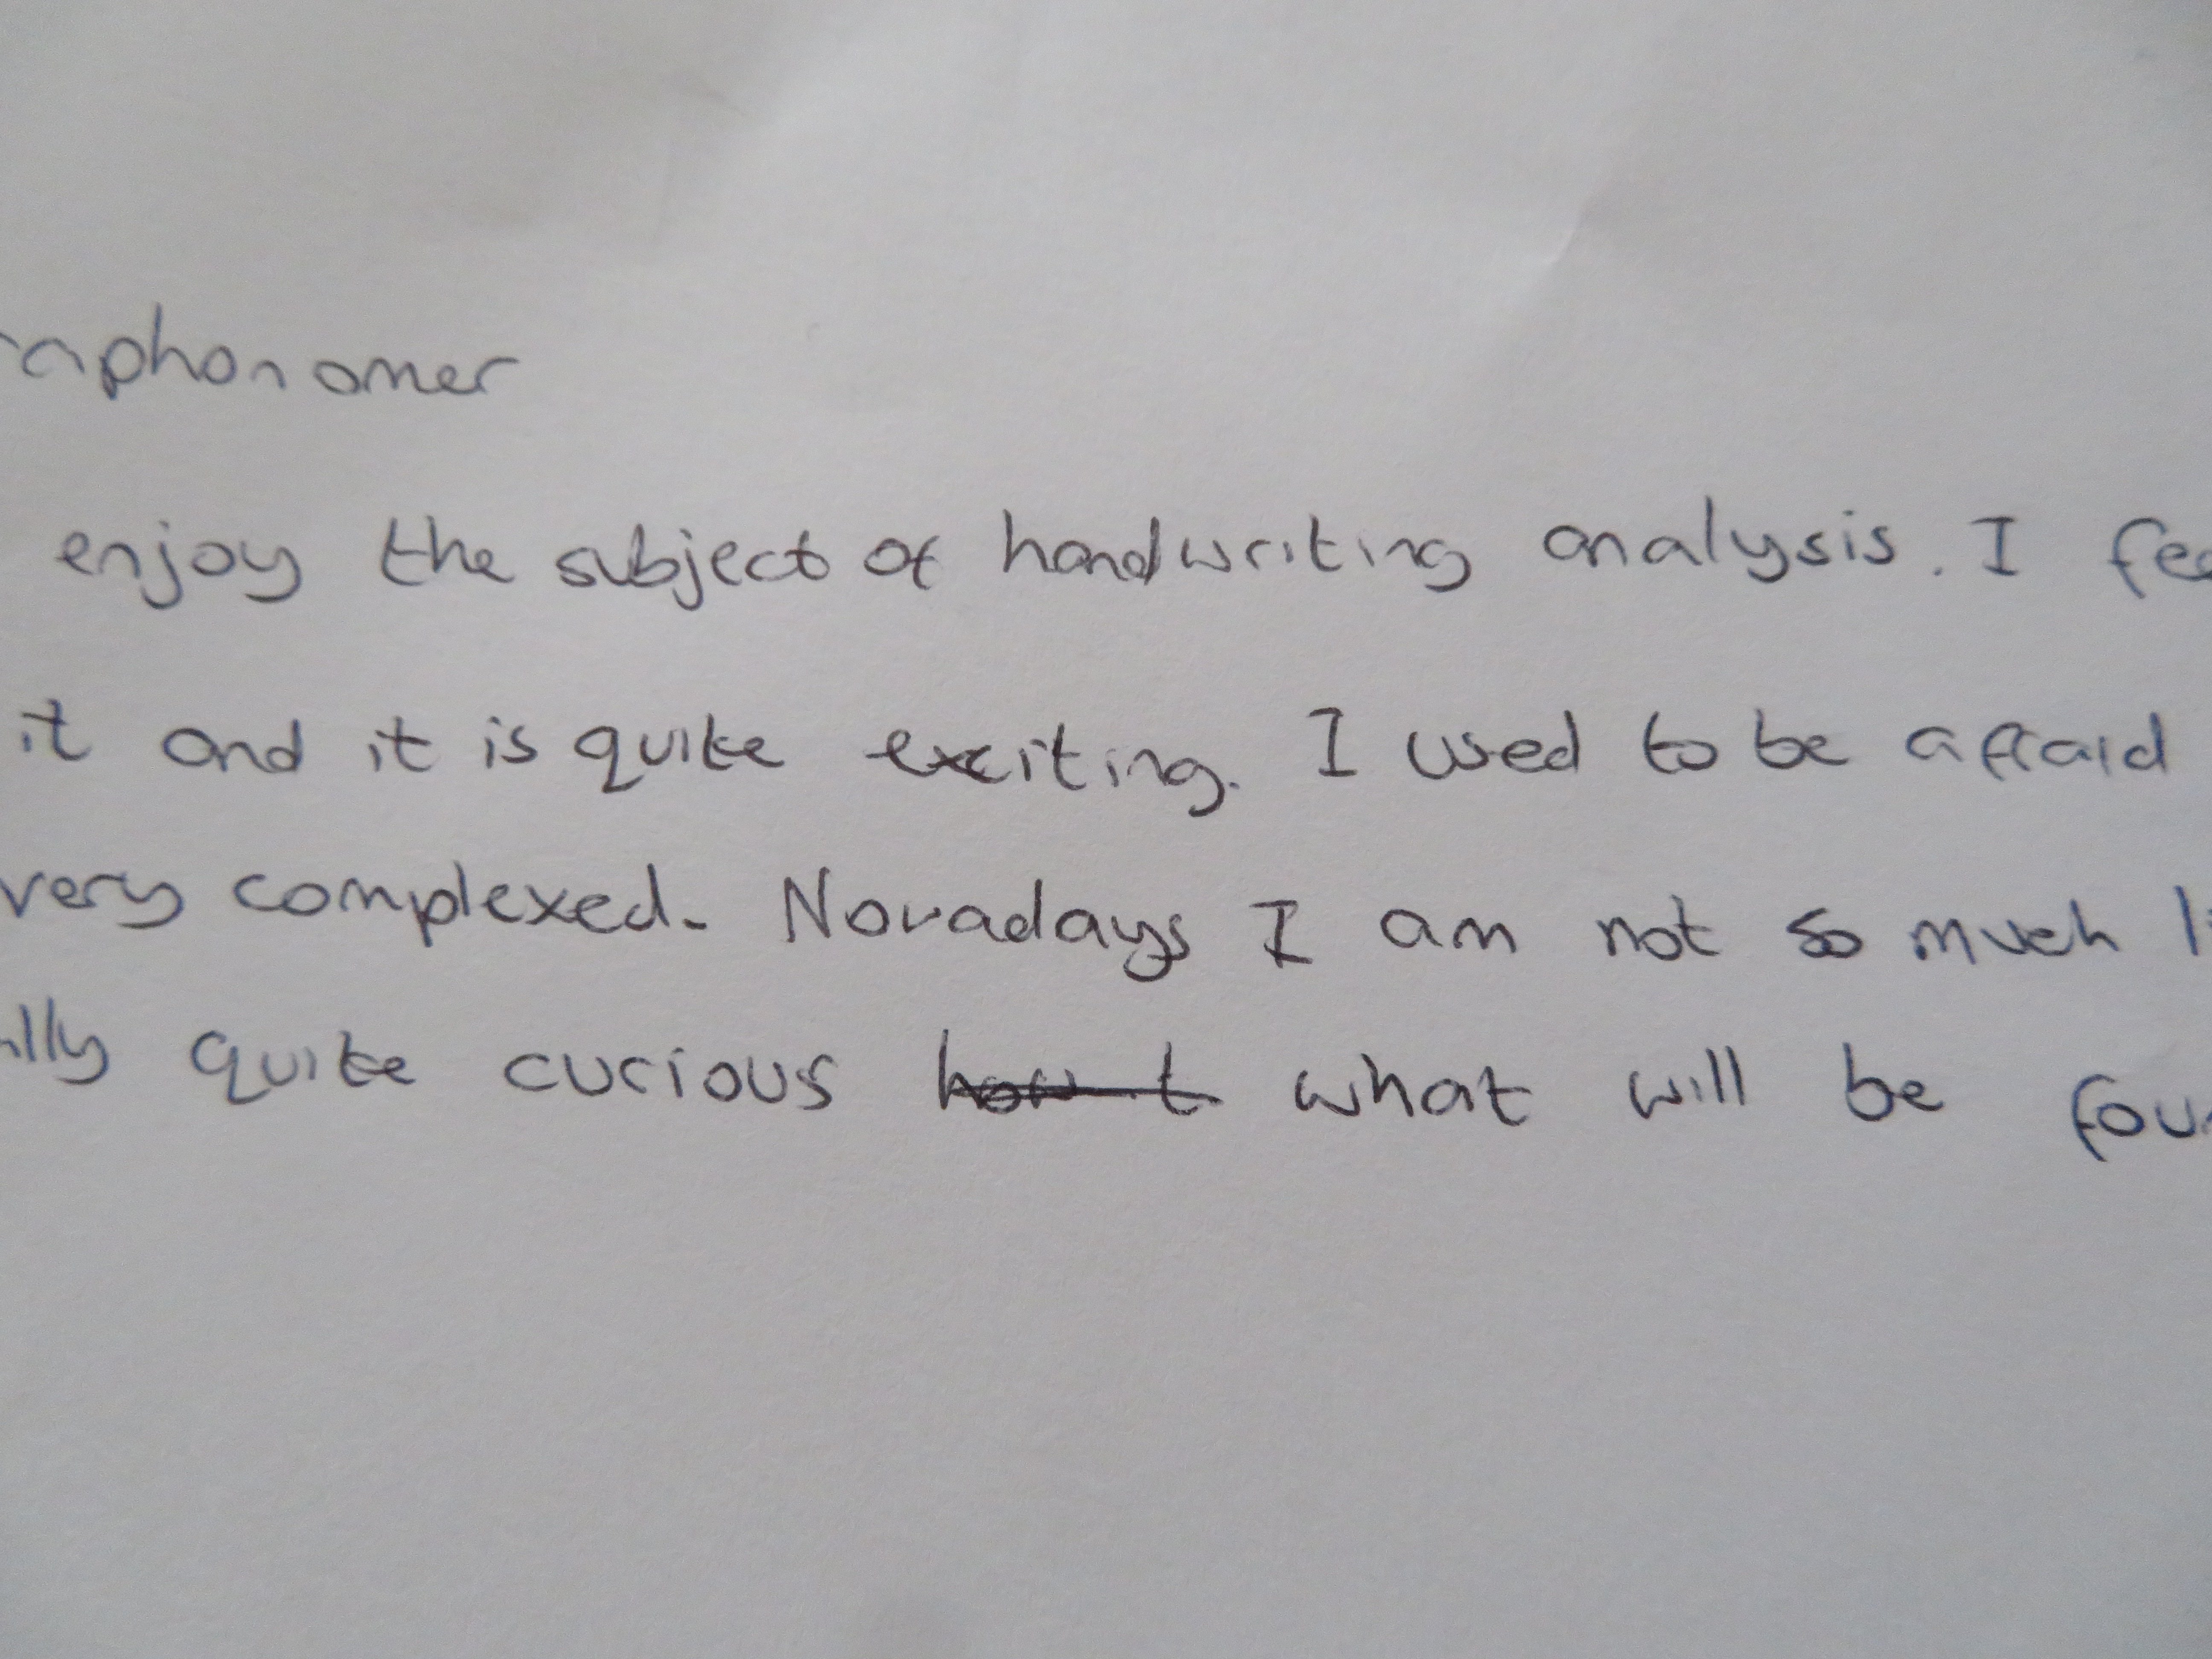 raphonomer
enjoy the subject of handwriting analysis. I fee
it and it is quite exciting. I used to be afraid
very complexed. Novadays I am not so much li
ally quite curious how t what will be foun